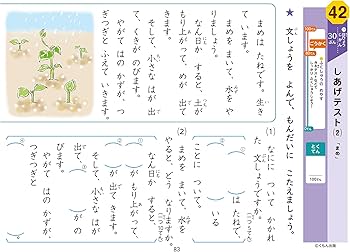 42
しあげテスト(2)
「まめ」
30ぷん
ごうかく
とくてん
100てん
★ 文しょうを よんで、もんだいに こたえましょう。
まめは たねです。生き
て います。
まめを まいて、水を や
りましょう。
なん日か すると、土が
もり上がって、めが 出て
きます。
そして、小さな はが 出
て、くきが のびます。
やがて はの かずが、つ
ぎつぎと ふえて いきます。
(1) なにに ついて かかれ
た 文しょうですか。
は たねで、
いる
ことに ついて。
(2) まめを まいて、水を
やると、どう なりますか。
なん日か すると、
が もり上がって、
が 出て きます。
そして、小さな はが
出て、
が のび
ます。
やがて はの かずが
つぎつぎと
83
©くもん出版